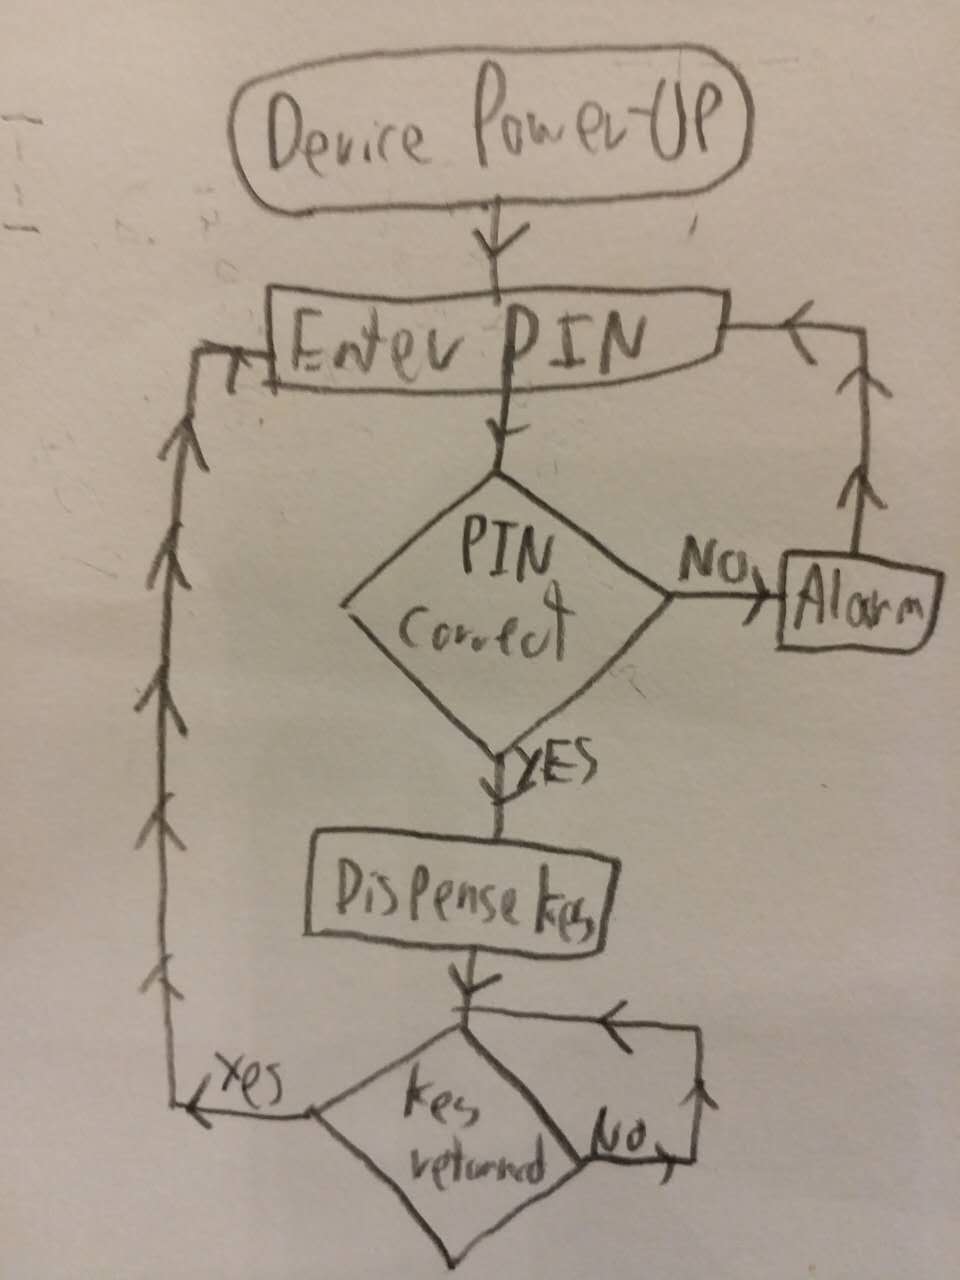 Device Power-UP
Enter PIN
PIN
Correct
No
Alarm
YES
Dispense key
Yes
key
returned
No